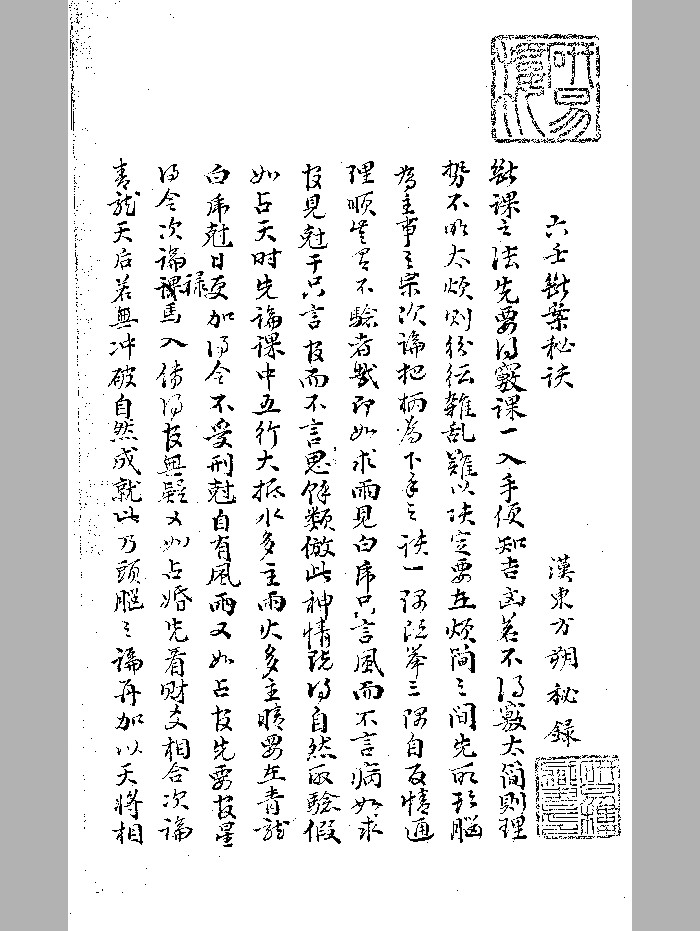 六壬斷案秘訣
漢東方朔秘錄
斷課之法先要得竅課一入手便知吉凶若不得竅太簡則理
勢不明太煩則紛紜雜乱難以決定要在煩簡之間先取頭腦
為主事之宗次論把柄為下手之訣一隅既举三隅自反情通
理順定有不驗者哉即如求雨見白虎只言風而不言病如求
官見尅干只言官而不言鬼餘類倣此神情既得自然取驗假
如占天时先論課中五行大抵水多主雨火多主晴要在青龍
白虎尅日更加得令不受刑尅自有風雨又如占官先要官星
得令次論祿馬入傳得官無疑又如占婚先看財爻相合次論
青龍天后若無冲破自然成就此乃頭腦之論再加以天將相
研易